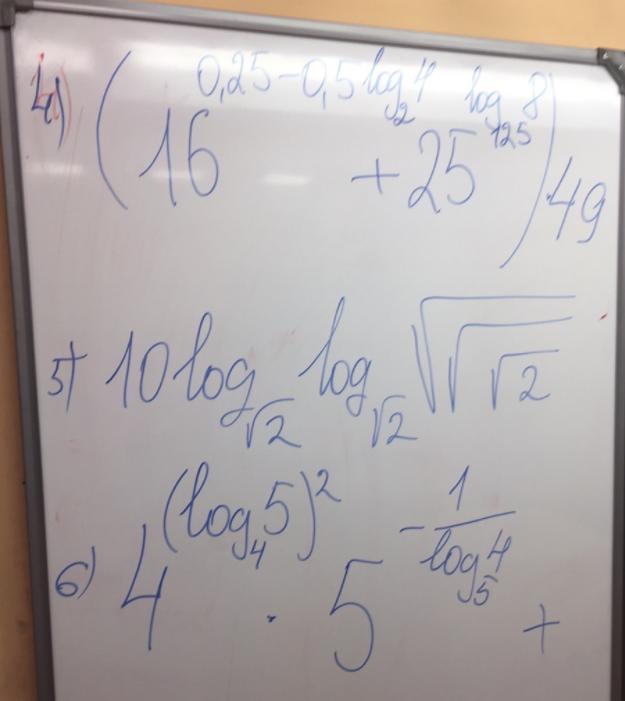 4) (16^{0,25-0,5\log_2 4} + 25^{\log_{125} 8}) \cdot 49
5) 10 \log_{\sqrt{2}} \log_{\sqrt{2}} \sqrt{\sqrt{\sqrt{2}}}
6) 4^{(\log_4 5)^2} \cdot 5^{-\frac{1}{\log_5 4}} +